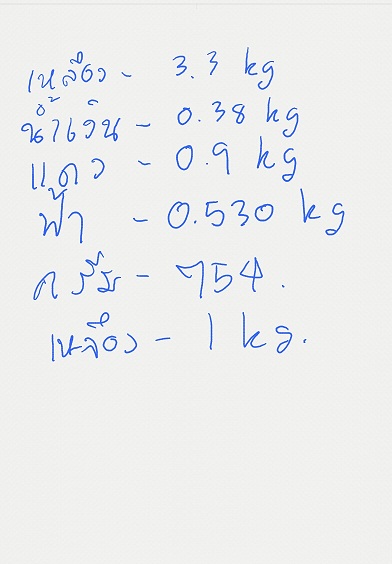 เหลือง - 3.3 kg
น้ำเงิน - 0.38 kg
แดง - 0.9 kg
ฟ้า - 0.530 kg
ครีม - 754.
เหลือง - 1 kg.